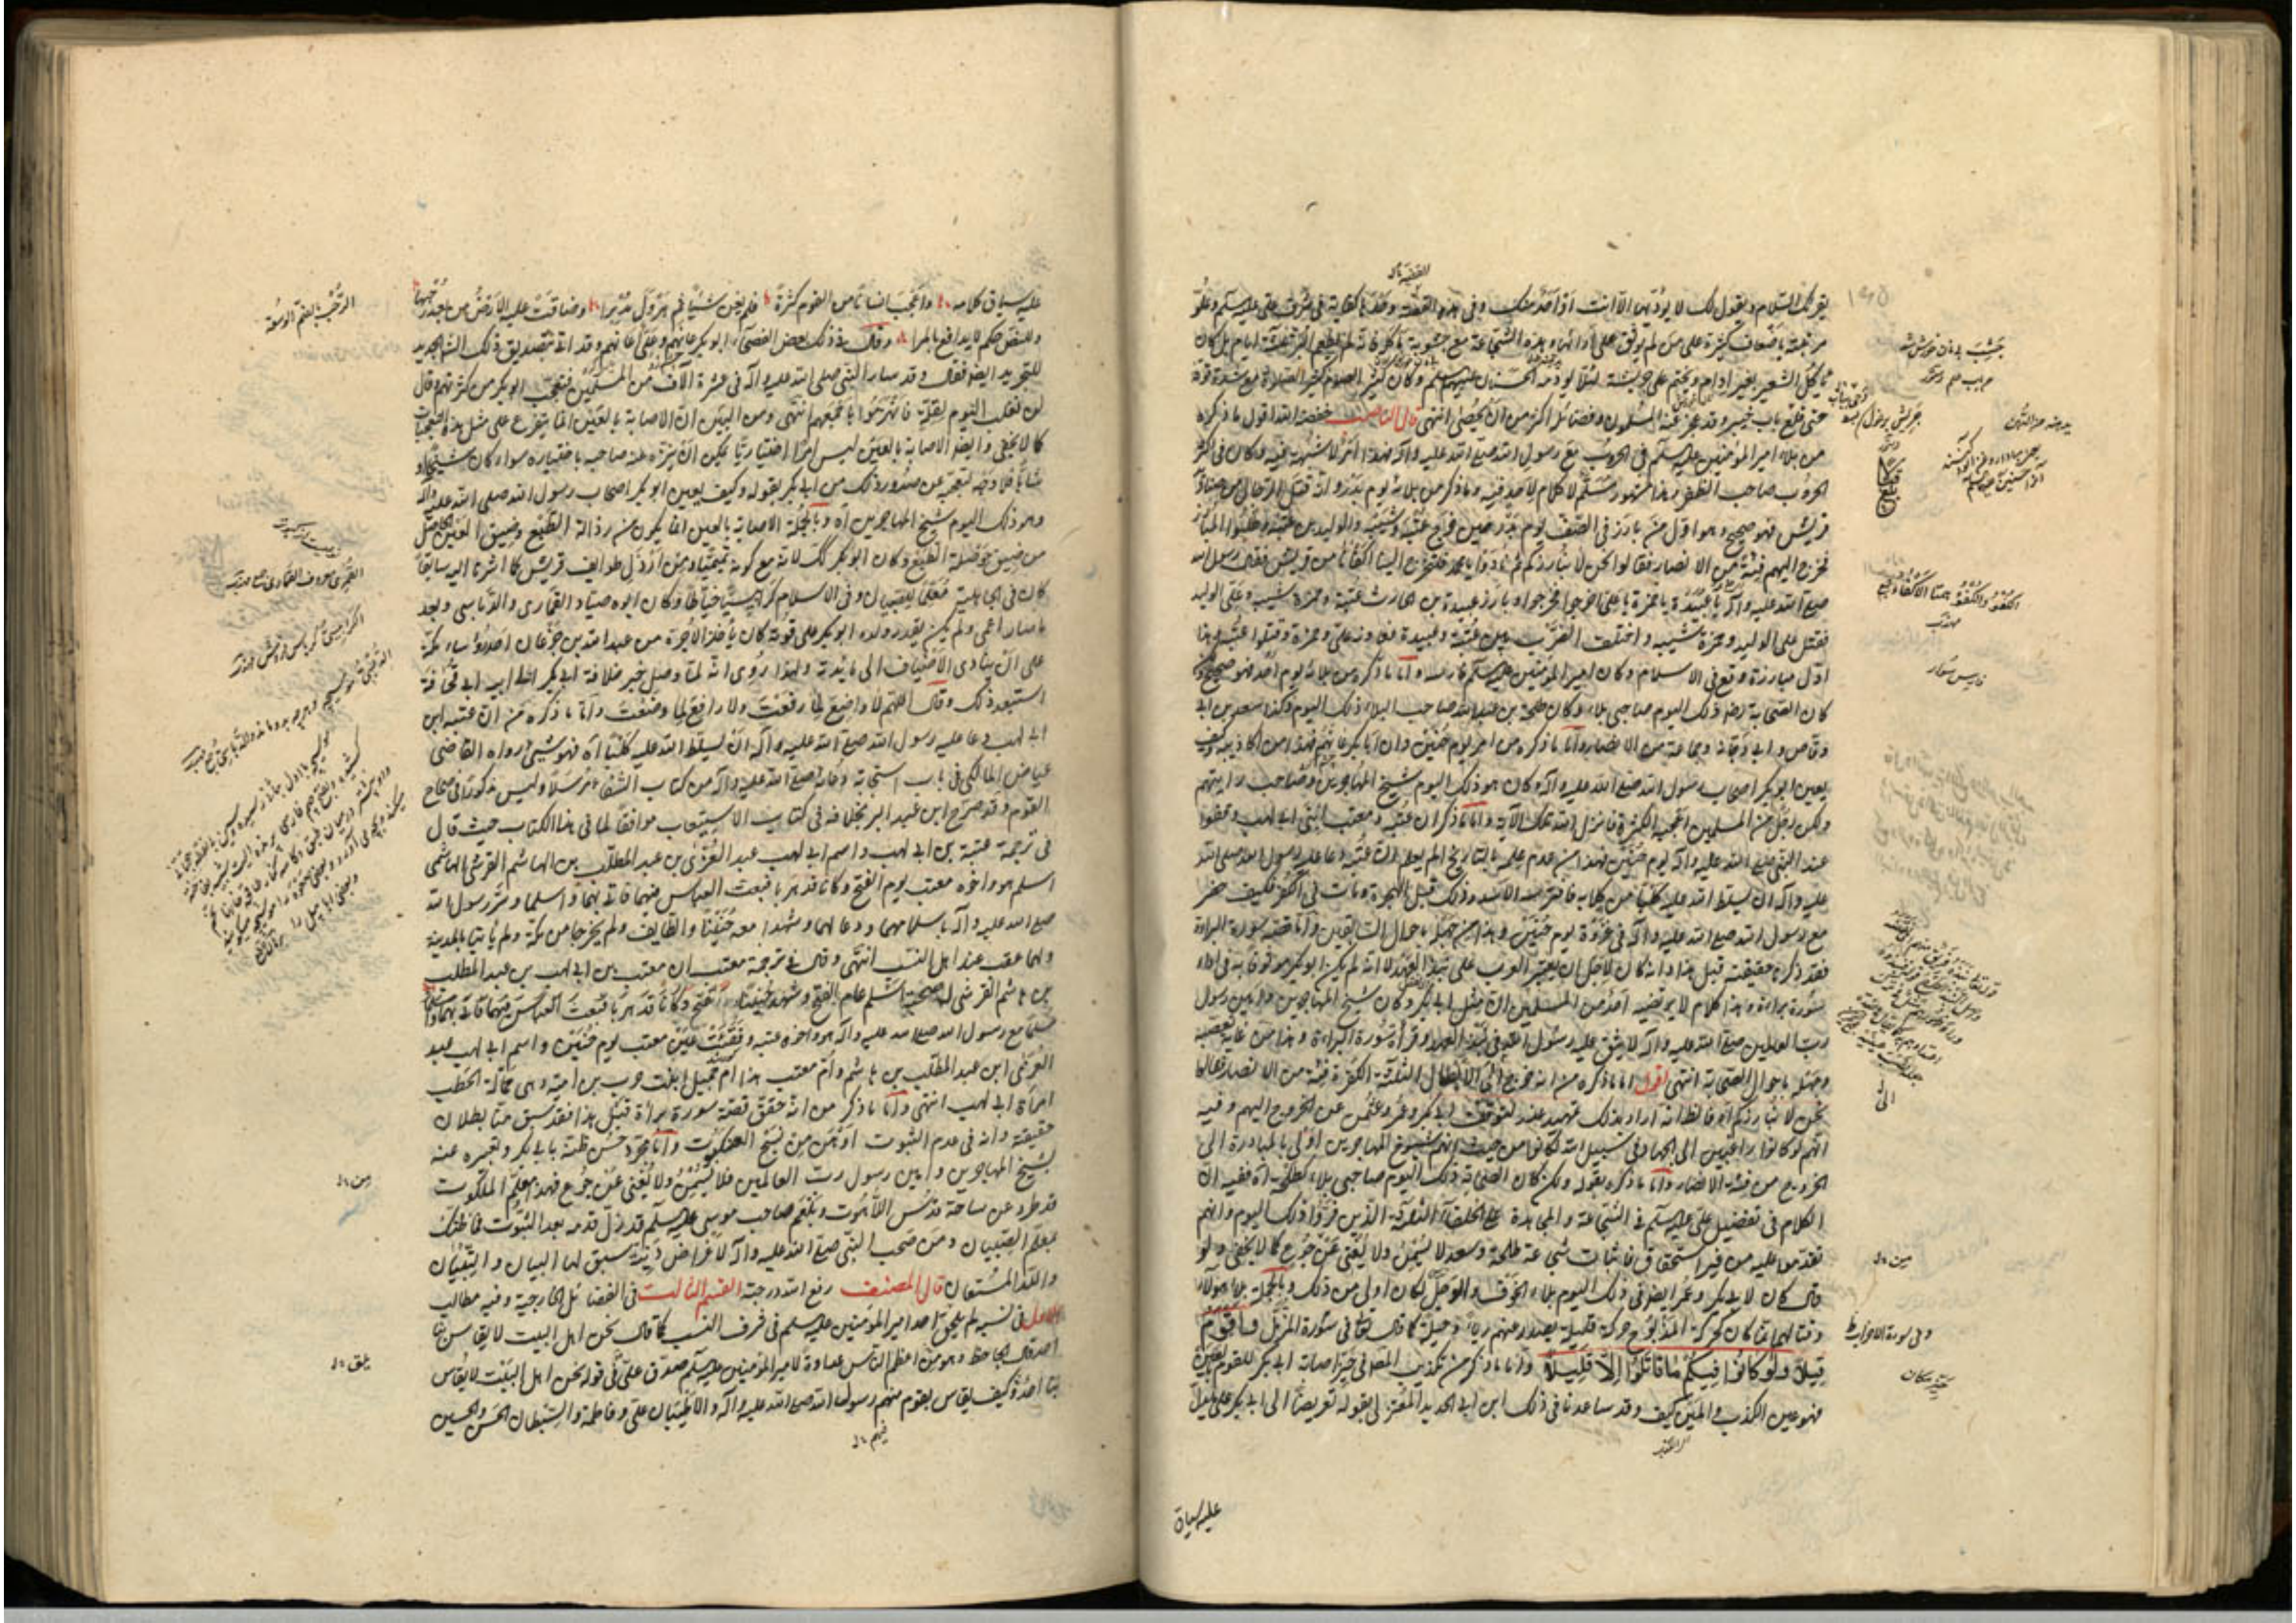 يقرئك السلام ويقول لك لا يؤديها الا انت او احد منك وفى هذه القصة كفاية فى شرف على عليه السلام وعلو
مرتبته باضعاف كثيرة على من لم يوثق على ادائها وهذه الشجاعة مع خشونة مأكله فانه لم يطعم البر ثلثة ايام بل كان
يأكل الشعير بغير ادام ويختم على جريشه لئلا يؤدمه الحسنان عليهما السلام وكان كثير الصوم كثير الصلاة مع شدة قوته
حتى قلع باب خيبر وقد عجز عنه المسلمون وفضائله اكثر من ان تحصى انتهى قال الناصب خفضه الله اقول ما ذكره
من بلاء امير المؤمنين عليه السلام فى الحروب مع رسول الله صلى الله عليه وآله فهذا امر لا شبهة فيه وكان فى اكثر
الحروب صاحب الظفر وهذا مشهور مسلم لا كلام لاحد فيه وما ذكر من بلائه يوم بدر وانه قتل الرجال من صناديد
قريش فهو صحيح وهو اول من بارز فى الصف يوم بدر حين خرج عتبة وشيبة والوليد بن عتبة وطلبوا المبارز
فخرج اليهم فتية من الانصار فقالوا نحن لا نبارزكم ثم نادوا يا محمد فلتخرج الينا اكفائنا من قريش فقال رسول الله
صلى الله عليه وآله يا عبيدة يا حمزة يا على اخرجوا فخرجوا وبارز عبيدة بن الحارث عتبة وحمزة شيبة وعلى الوليد
فقتل على الوليد وحمزة شيبه واختلف الضرب بين عتبة وعبيدة فعاونه على وحمزة وقتلوا عتبة هذا
اول مبارزة وقع فى الاسلام وكان امير المؤمنين عليه السلم فارسه واما ما ذكره من بلائه يوم احد فهو صحيح
كان الصحابة ذلك اليوم صاحبى بلاء وكان طلحة بن عبد الله صاحب البلاء ذلك اليوم وكذا سعد بن ابى
وقاص وابى دجانة وجماعة من الانصار واما ما ذكره من امر يوم حنين وان ابا بكر عانهم فهذا من اكاذيبه وكيف
يعين ابو بكر اصحاب رسول الله صلى الله عليه وآله وكان هو ذلك اليوم شيخ المهاجرين وصاحب رايتهم
ولكن رجل من المسلمين اعجبه الكثرة فانزل الله تلك الآية واما ما ذكر ان عتبة ومعتب ابنى ابى لهب وقفوا
عند النبى صلى الله عليه وآله يوم حنين فهذا من عدم علمه بالتاريخ الم يعلم ان عتبة دعا عليه رسول الله صلى الله
عليه وآله ان يسلط الله عليه كلبا من كلابه فافترسه الاسد وذلك قبل الهجرة ومات فى الكفر فكيف حضر
مع رسول الله صلى الله عليه وآله فى غزوة يوم حنين وهذا من جهله باحوال السابقين واما قصة سورة البراءة
فقد ذكرنا حقيقته قبل هذا وانه كان لاجل ان يعتبر العرب على نبذ العهد لا انه لم يكن ابو بكر موثوقا به فى اداء
سورة براءة وهذا كلام لا يرتضيه احد من المسلمين ان مثل ابى بكر وكان شيخ المهاجرين وامين رسول
رب العالمين صلى الله عليه وآله لا يثق عليه رسول الله فى نبذ العهد وقرأة سورة البراءة وهذا من غاية تعصبه
وجهله باحوال الصحابة انتهى اقول اما ما ذكره من انه خرج الى الابطال الثلثة الكفرة فتية من الانصار فقالوا
نحن لا نبارزكم آه فالظ انه اراد بذلك تمهيد عذر لتوقف ابى بكر وعمر وعثمن عن الخروج اليهم وفيه
انهم لو كانوا راغبين الى الجهاد فى سبيل الله لكانوا من حيث انهم شيوخ المهاجرين اولى بالمبادرة الى
الخروج من فتية الانصار واما ما ذكره بقوله ولكن كان الصحابة ذلك اليوم صاحبى بلاء كطلحة آه ففيه ان
الكلام فى تفضيل على عليه السلم فى الشجاعة والمجاهدة على الخلفاء الثلثة الذين فروا ذلك اليوم وانهم
تقدموا عليه من غير استحقاق فاثبات شجاعة طلحة وسعد لا يسمن ولا يغنى عن جوع كما لا يخفى ولو
قال كان لابى بكر وعمر ايضا فى ذلك اليوم بلاء الخوف والوجل لكان اولى من ذلك وبالجملة بلاء هؤلاء
وقتالهم انما كان كحركة المذبوح حركة قليلة يصدر عنهم رياء وحيلة كما قال تعالى فى سورة المزمل واقوم
قيلا ولو كانوا فيكم ما قاتلوا الا قليلا واما ما ذكر من تكذيب المصنف فى خبر اصابة ابى بكر للقوم بعينه
فهو عين الكذب والمين كيف وقد ساعدنا فى ذلك ابن ابى الحديد المعتزلى بقوله تعريضا الى ابى بكر على ما يدل
عليه سياق
عليه سياق كلامه واعجب انسانا من القوم كثرة فلم يغن شيئا ثم هرول مدبرا وضاقت عليه الارض من بعد رحبها
وللنص حكم لا يدافع بالمرا وقال فى ذلك بعض الفصحاء ابو بكر عانهم وعلى اعانهم وقد اتى بتصديق ذلك الشارح الجديد
للتجريد ايضا فقال وقد سار النبى صلى الله عليه وآله فى عشرة آلاف من المسلمين فتعجب ابو بكر من كثرتهم وقال
لن نغلب اليوم لقلة فانهزموا باجمعهم انتهى ومن البين ان الاصابة بالعين انما يتفرع على مثل هذه التعجبات
كما لا يخفى وايضا الاصابة بالعين ليس امرا اختياريا يمكن ان يتنزه عنه صاحبه باختياره سواء كان شيخا او
شابا فلا وجه لتعجبه عن صدور ذلك من ابى بكر بقوله وكيف يعين ابو بكر اصحاب رسول الله صلى الله عليه وآله
وهو ذلك اليوم شيخ المهاجرين آه وبالجملة الاصابة بالعين انما يكون من رذالة الطبع وضيق العين الحاصل
من ضيق حوصلة الطبع وكان ابو بكر كك لانه مع كونه تيميا ومن ارذل طوايف قريش كما اشرنا اليه سابقا
كان فى الجاهلية معلما للصبيان وفى الاسلام كرابيسيا خياطا وكان ابوه صياد القمارى والدباسى وبعد
ما صار اعمى ولم يكن يقدر ولده ابو بكر على قوته كان يأخذ الاجرة من عبد الله بن جدعان احد رؤساء مكة
على ان ينادى الاضياف الى مائدته ولهذا روى انه لما وصل خبر خلافة ابى بكر الى ابيه ابى قحافة
استبعد ذلك وقال اللهم لا واضع لما رفعت ولا رافع لما وضعت واما ما ذكره من ان عتبة ابن
ابى لهب دعا عليه رسول الله صلى الله عليه وآله ان يسلط الله عليه كلبا آه فهو شىء رواه القاضى
عياض المالكى فى باب استجابة دعائه صلى الله عليه وآله من كتاب الشفاء مرسلا وليس مذكورا فى صحاح
القوم وقد صرح ابن عبد البر بخلافه فى كتاب الاستيعاب موافقا لما فى هذا الكتاب حيث قال
فى ترجمة عتبة بن ابى لهب واسم ابى لهب عبد العزى بن عبد المطلب بن الهاشم القرشى الهاشمى
اسلم هو واخوه معتب يوم الفتح وكانا قد هربا فبعث العباس فيهما فاتى بهما واسلما وسر رسول الله
صلى الله عليه وآله باسلامهما ودعا لهما وشهدا معه حنينا والطايف ولم يخرجا من مكة ولم يأتيا المدينة
ولهما عقب عند اهل النسب انتهى وقال فى ترجمة معتب ان معتب بن ابى لهب بن عبد المطلب
بن هاشم القرشى له صحبة اسلم عام الفتح وشهد حنينا وكانا قد هربا فبعث العباس فيهما فاتى بهما واسلما
مسلما مع رسول الله صلى الله عليه وآله هو واخوه عتبة وفقئت عين معتب يوم حنين واسم ابى لهب عبد
العزى ابن عبد المطلب بن هاشم وام معتب هذا ام جميل بنت حرب بن امية وهى حمالة الحطب
امرأة ابى لهب انتهى واما ما ذكر من انه حقق قصة سورة براءة قبل هذا فقد سبق منا بطلان
حقيقته وانه فى عدم الثبوت اوهن من نسج العنكبوت واما مجرد حسن ظنه بابى بكر وتعبيره عنه
بشيخ المهاجرين وامين رسول رب العالمين فلا يسمن ولا يغنى عن جوع فهذا معلم الملكوت
قد طرد عن ساحة قدس اللاهوت وبلعم صاحب موسى عليه السلم قد زل قدمه بعد الثبوت فما ظنك
بمعلم الصبيان ومن صحب النبى صلى الله عليه وآله لاغراض دنية سبق لها البيان والتبيان
والله المستعان قال المصنف رفع الله درجته القسم الثالث فى الفضائل الخارجية وفيه مطالب
الاول فى نسبه لم يلحق احد امير المؤمنين عليه السلم فى شرف النسب كما قال نحن اهل البيت لا يقاس بنا
احد قال الجاحظ وهو من اعظم الناس عداوة لامير المؤمنين عليه السلم صدق على فى قوله نحن اهل البيت لا يقاس
بنا احد وكيف يقاس بقوم منهم رسول الله صلى الله عليه وآله والاطيبان على وفاطمة والسبطان الحسن والحسين